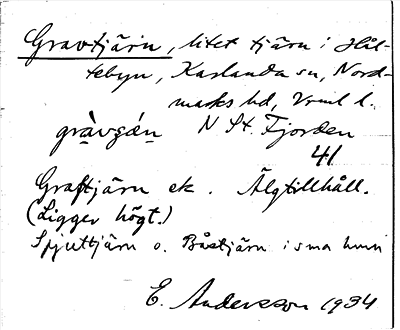 Gravtjärn, litet tjärn i Hål-
tebyn, Karlanda sn, Nord-
marks hd, Vrml l.
N St. Fjorden
41
Graftjärn ek. Älgtillhåll.
(Ligger högt.)
Spjuttjärn o. Båstjärn i sma
E. Andersson 1934